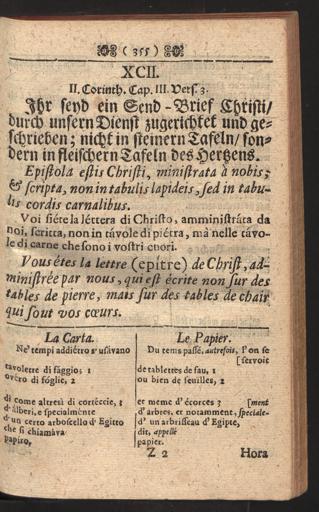 ( 355 )
XCII.
II. Corinth. Cap. III. Vers. 3.
Ihr seyd ein Send-Brief Christi/
durch unsern Dienst zugerichtet und ge-
schrieben; nicht in steinern Tafeln/ son-
dern in fleischern Tafeln des Hertzens.
Epistola estis Christi, ministrata à nobis;
& scripta, non in tabulis lapideis, sed in tabu-
lis cordis carnalibus.
Voi siéte la léttera di Christo, amministráta da
noi, scritta, non in távole di piétra, mà nelle távo-
le di carne che sono i vostri cuori.
Vous étes la lettre (epître) de Christ, ad-
ministrée par nous, qui est écrite non sur des
tables de pierre, mais sur des tables de chair
qui sont vos cœurs.
La Carta.
Ne' tempi addiétro s' usávano
tavolette di fággio; 1
ovéro di fóglie, 2
di come altresì di cortéccie, 3
d' álberi, e specialménte
d' un certo arboscello d' Egitto
che si chiamáva
papíro,
Le Papier.
Du tems passé, autrefois, l' on se
[servoit
de tablettes de fau, 1
ou bien de feuilles, 2
et meme d' écorces 3 [ment
d' arbres, et notamment, speciale-
d' un arbrisseau d' Egipte,
dit, appellé
papier.
Z 2 Hora